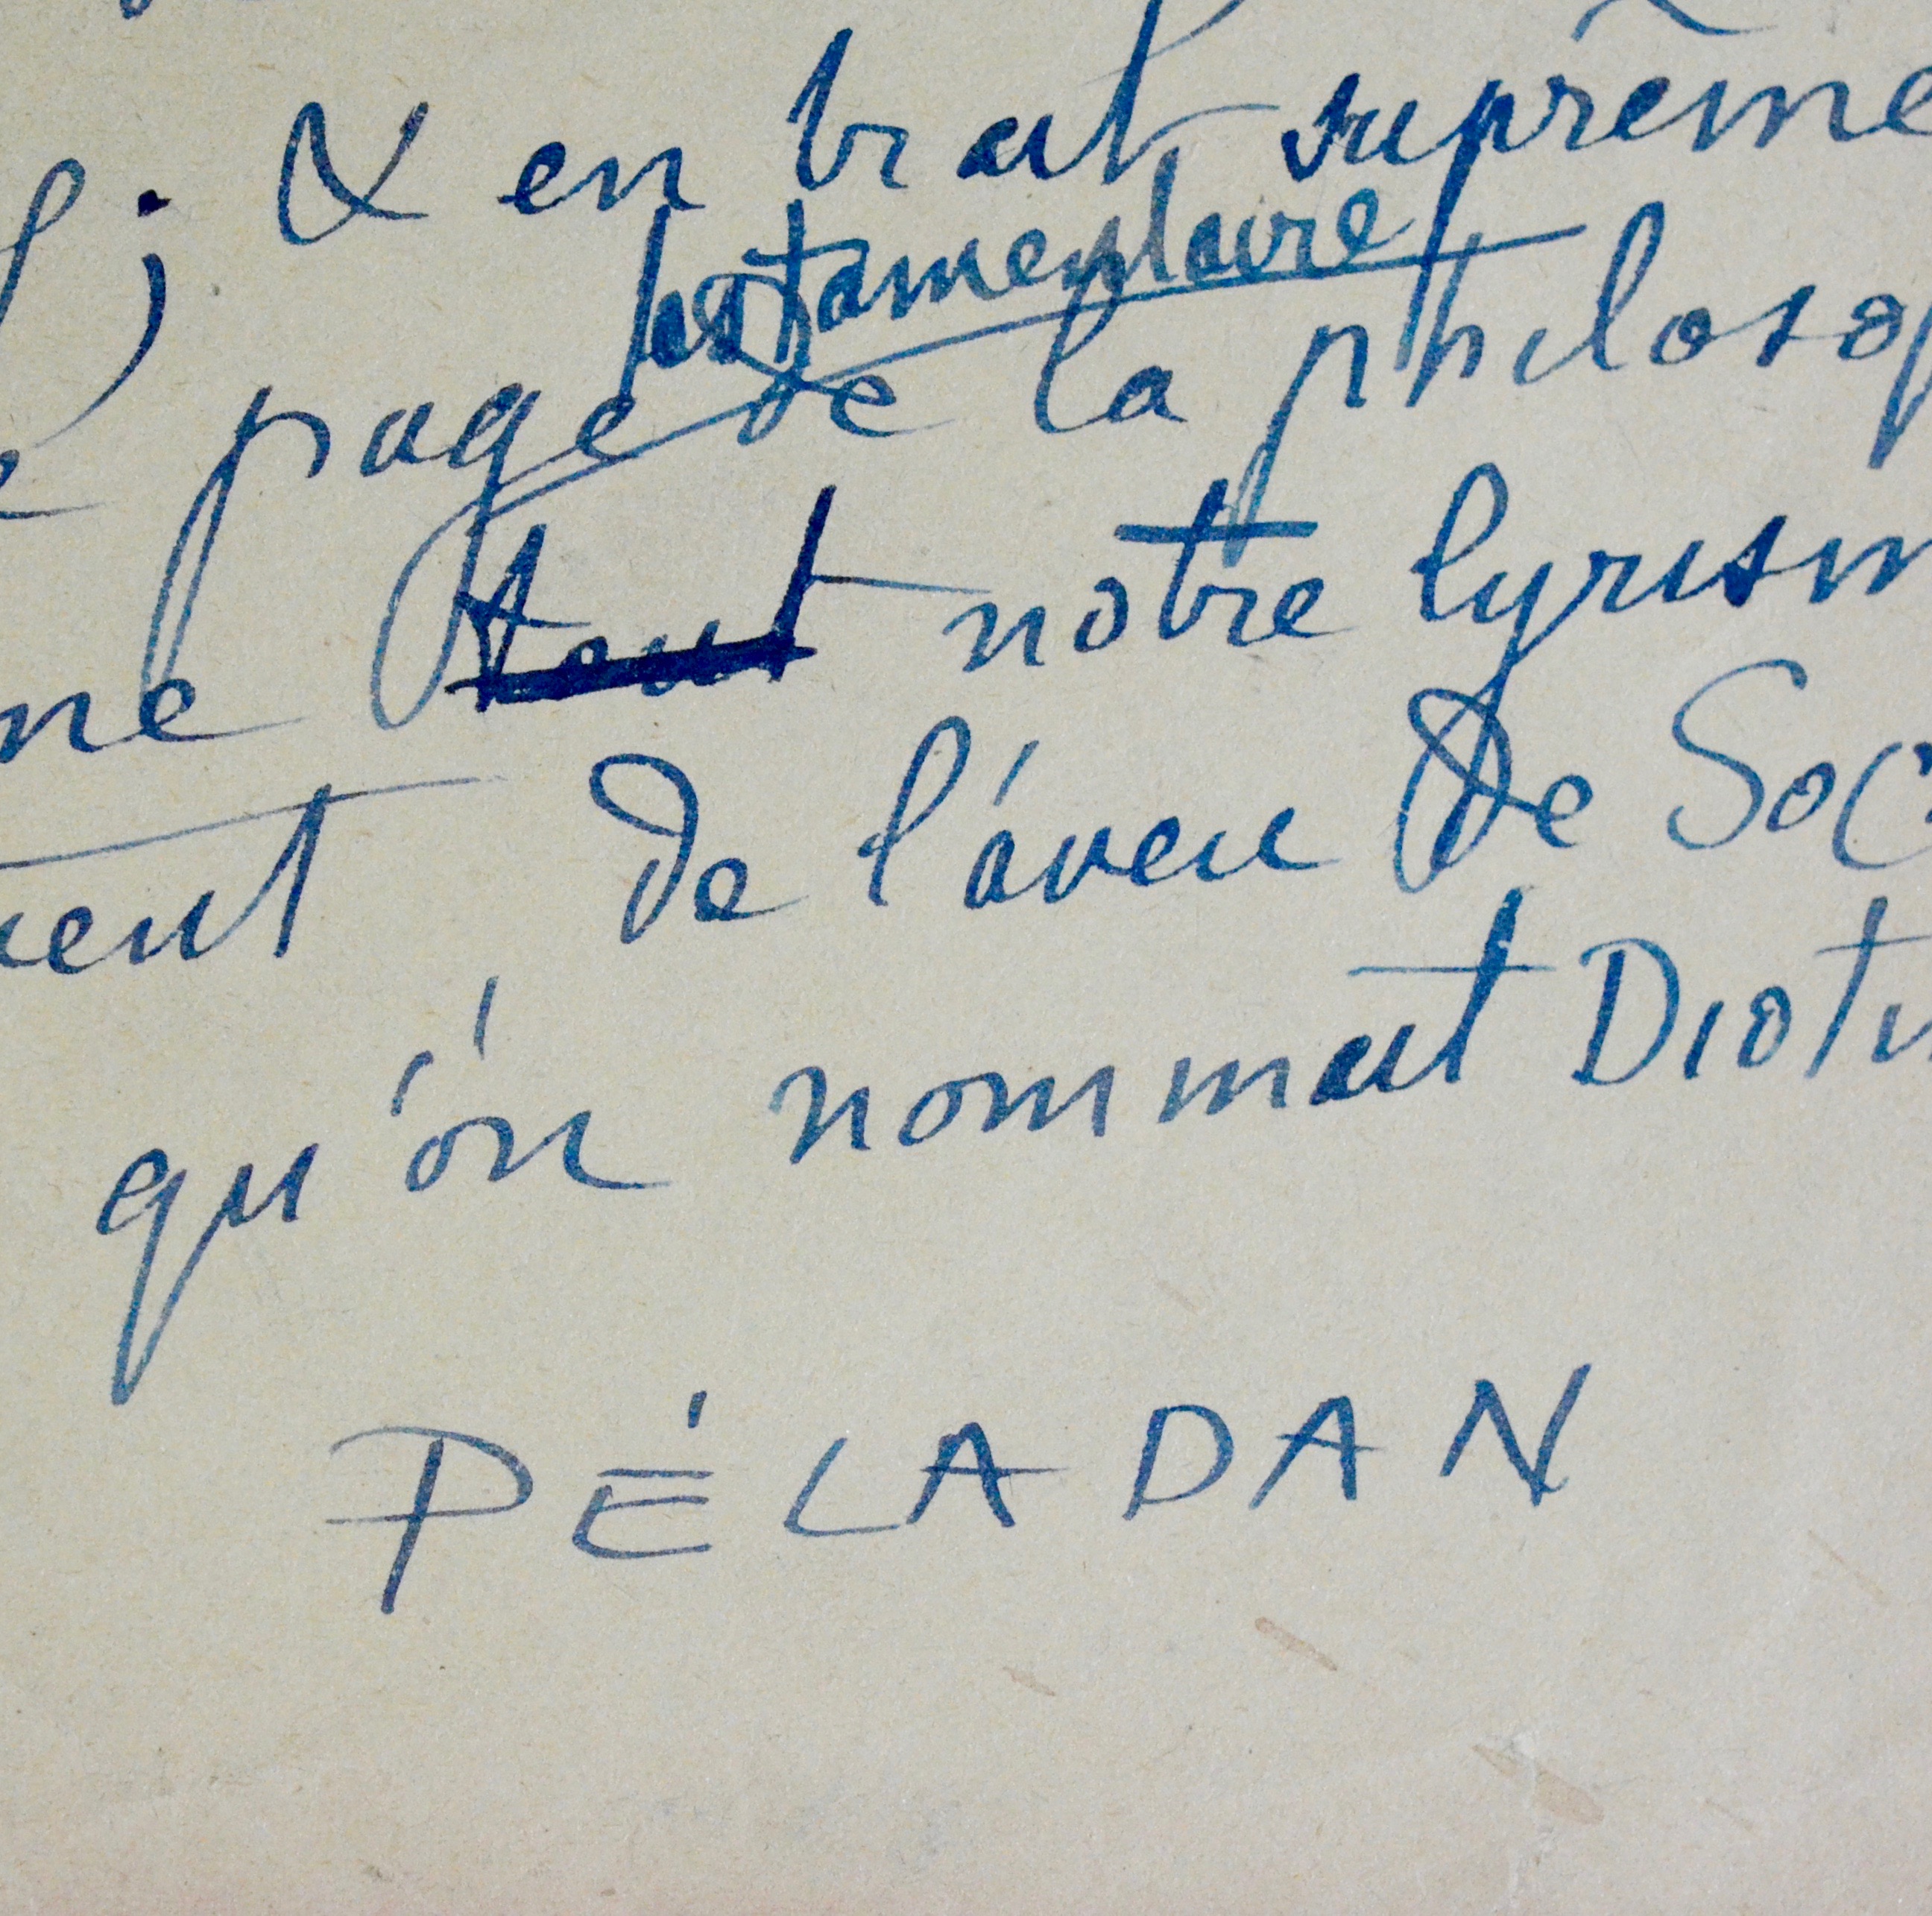 ; & en trait suprême
testamentaire
page de la philosop
ne tout notre lyrism
ient, de l'aveu de Soc
qu'on nommait Dioti
PÉLADAN